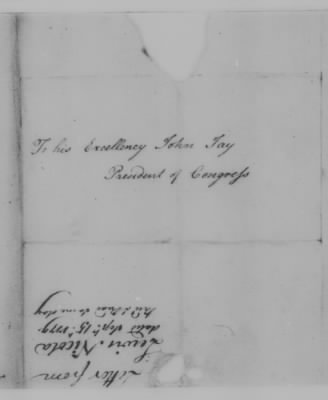 To his Excellency John Jay
President of Congress
Letter from
Lewis Nicola
dated Sept. 15th 1779
Read same day